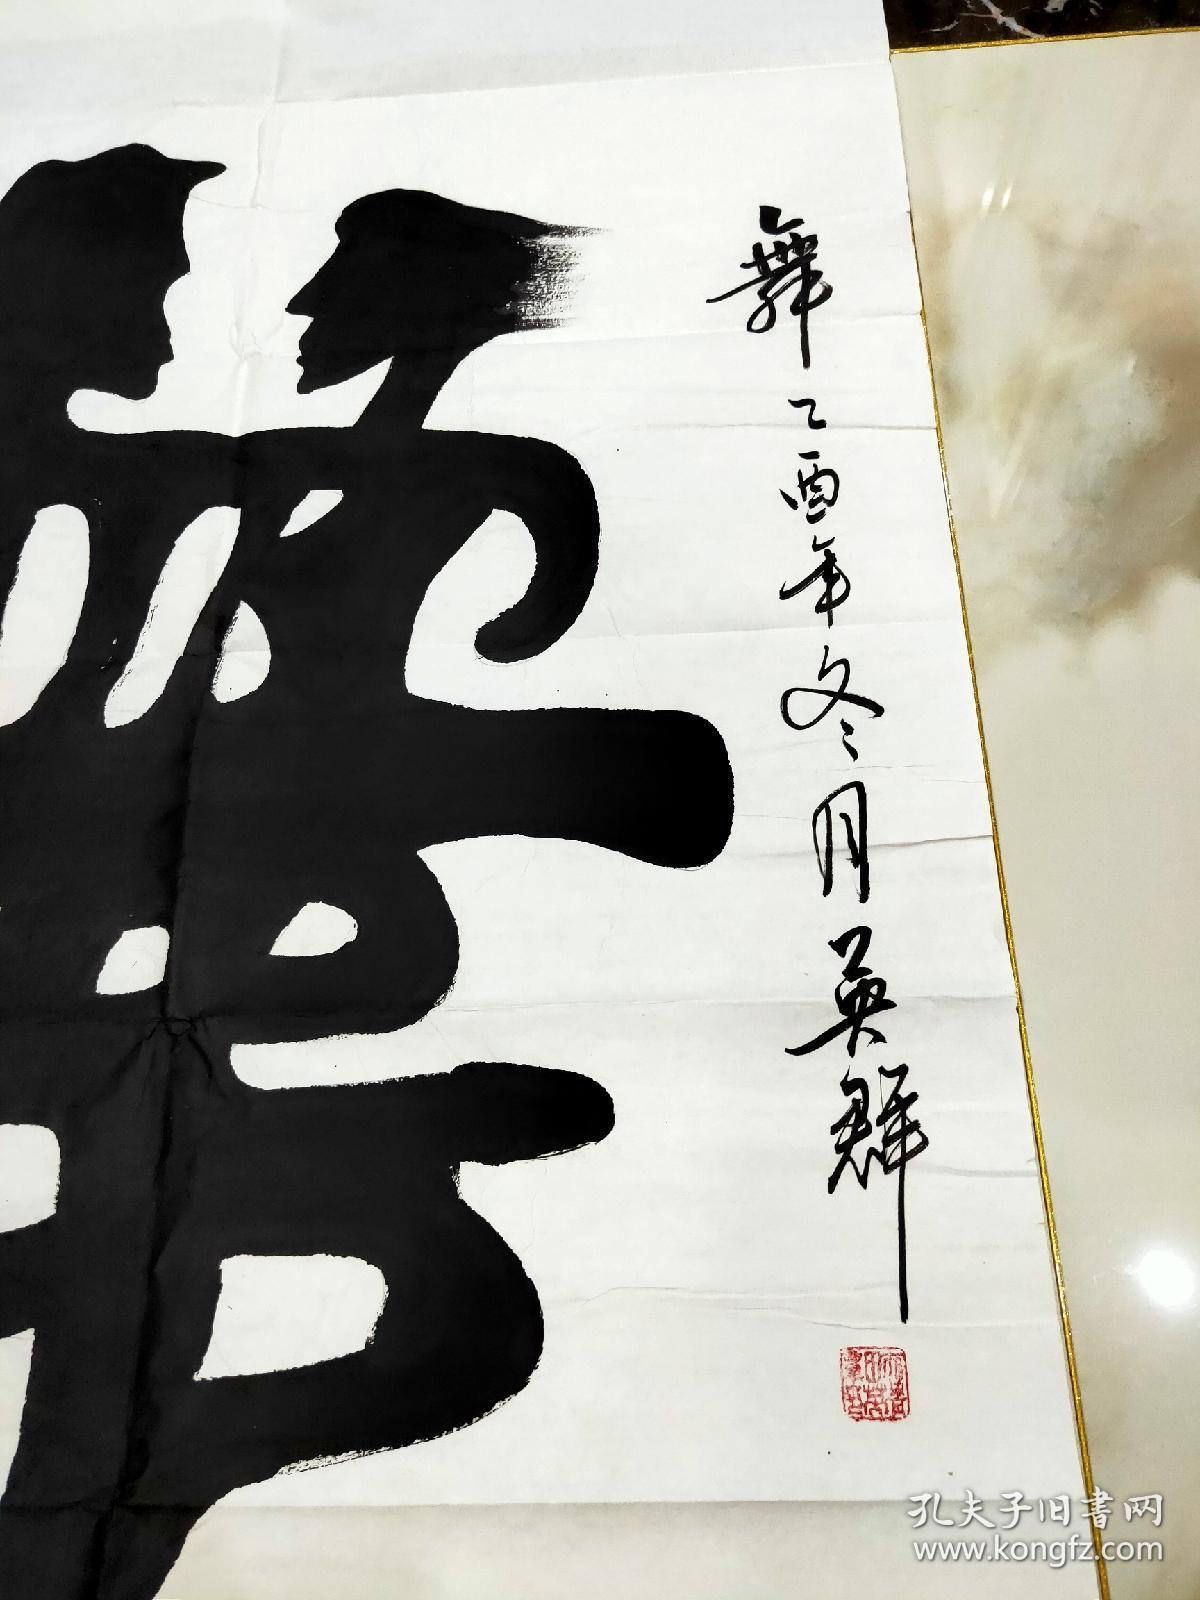 舞
乙酉年冬月英群
孔夫子旧書网
www.kongfz.com